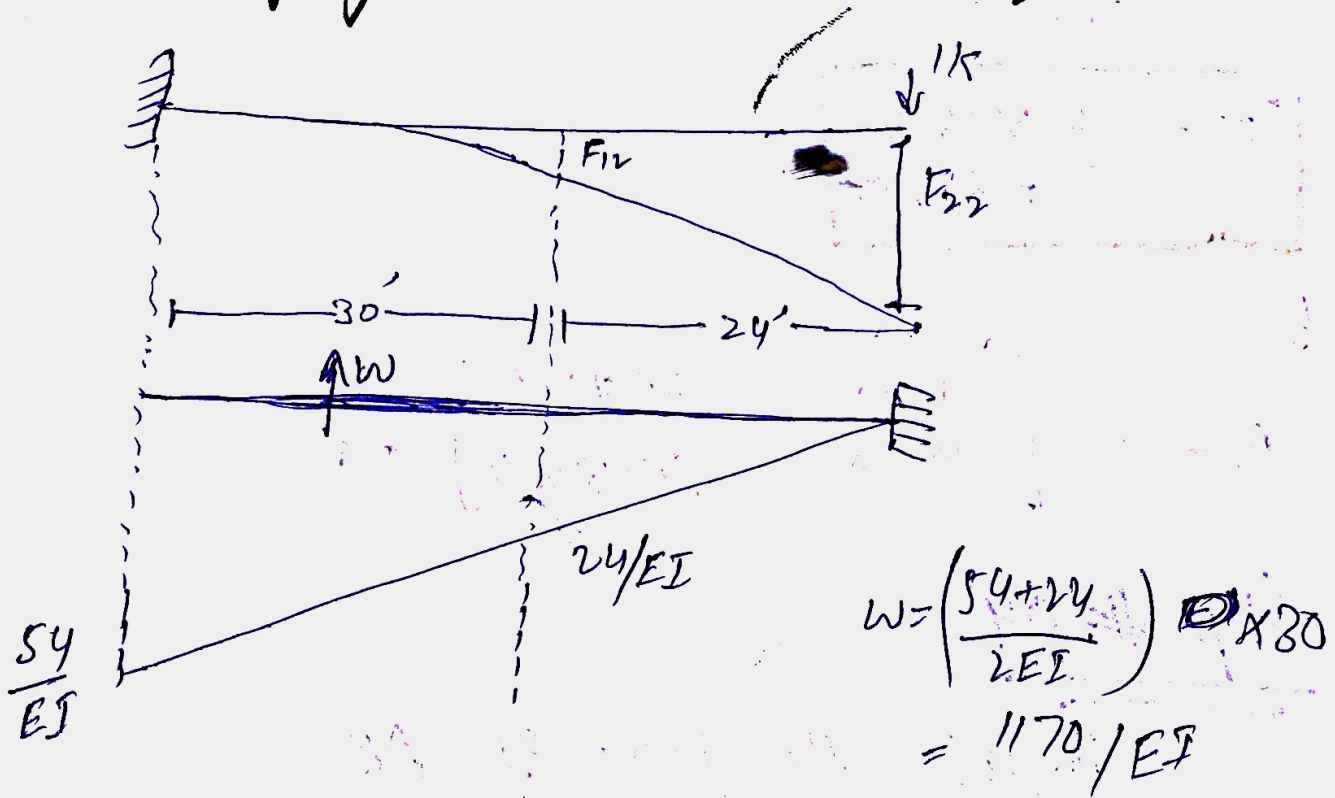 1K
F12
F22
30'
24'
W
24/EI
54/EI
W = (54+24 / 2EI) × 30
= 1170/EI